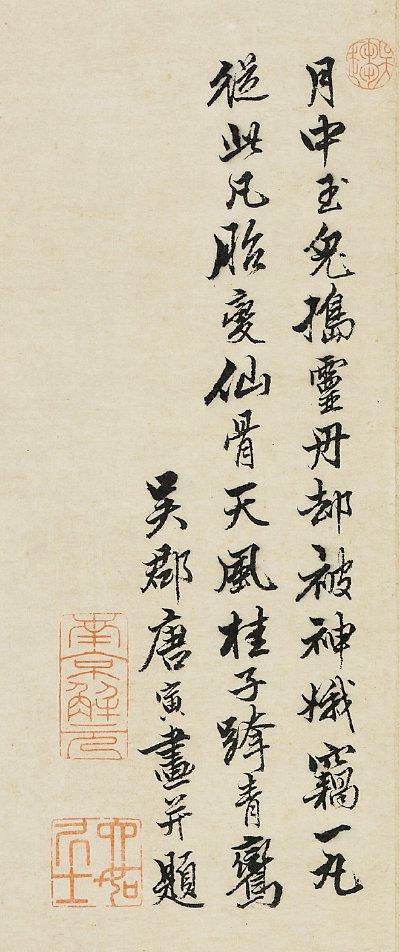 月中玉兔搗靈丹却被神娥竊一丸
從此凡胎變仙骨天風桂子跨青鸞
吳郡唐寅畫并題
南京解元
六如居士
吳趨